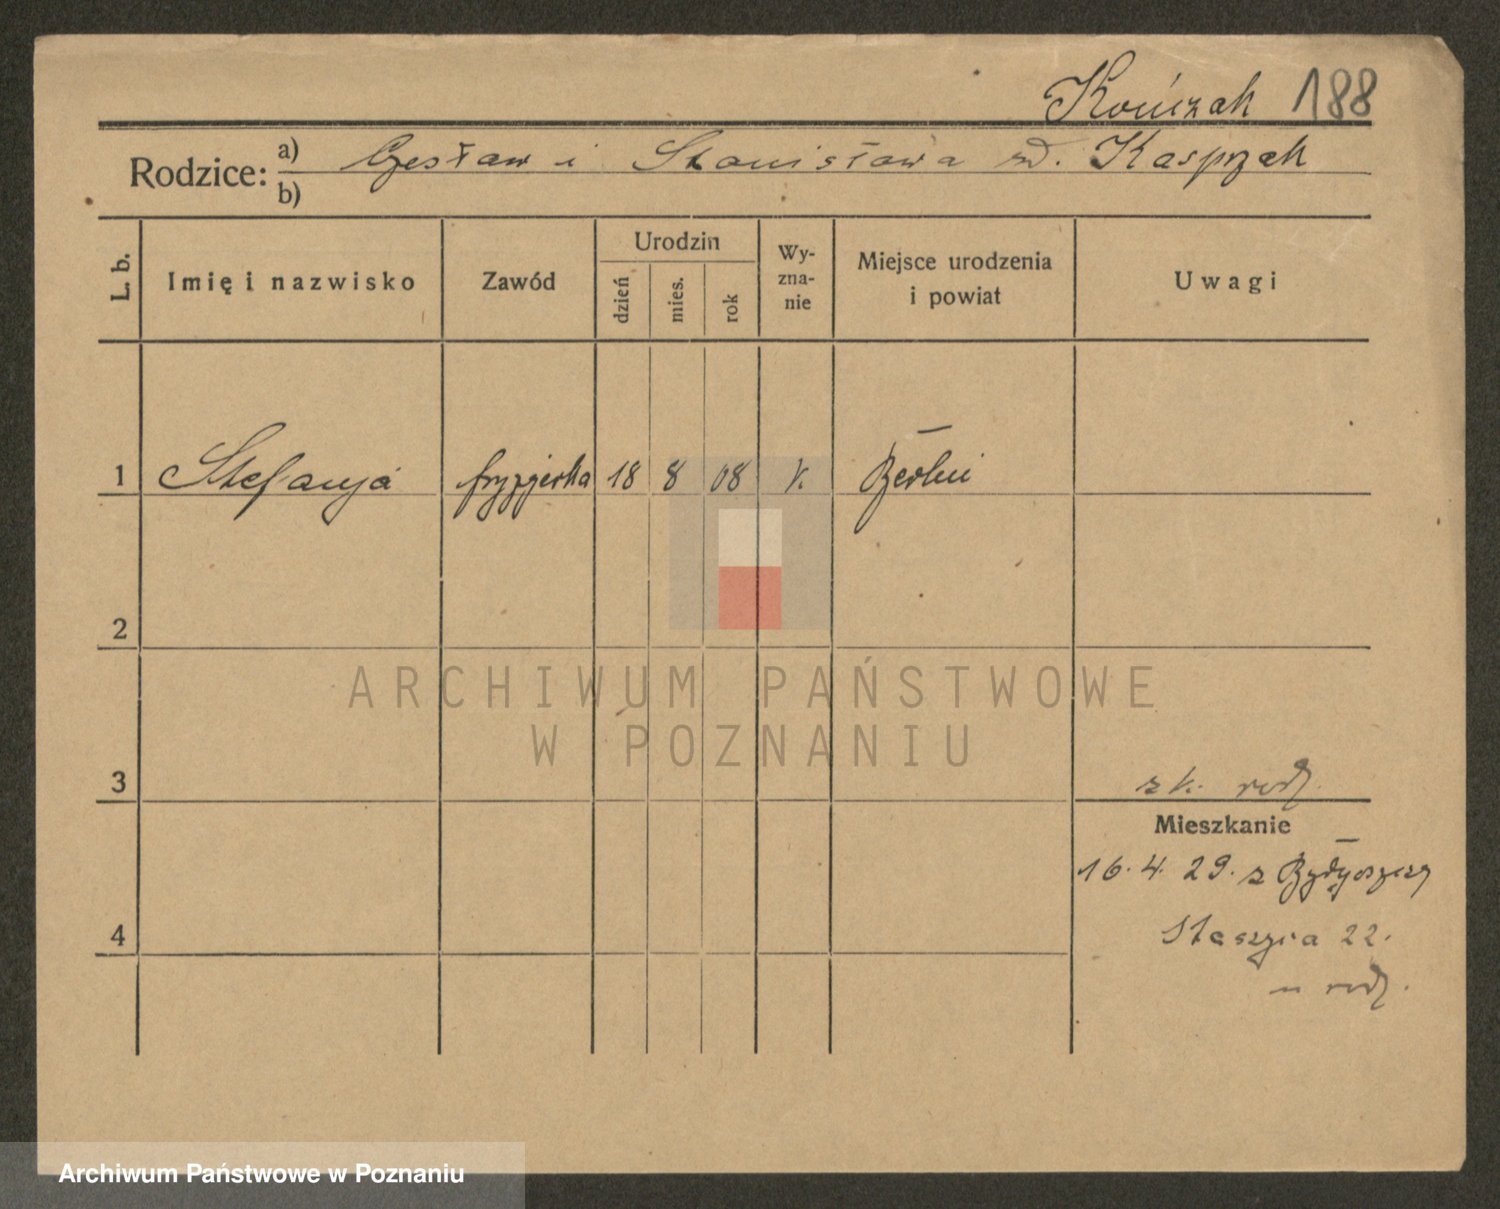 Kończak 188
Rodzice: a) Czesław i Stanisława zd. Kasprzak
b)
L. b.
Imię i nazwisko
Zawód
Urodzin
dzień
mies.
rok
Wy-
zna-
nie
Miejsce urodzenia
i powiat
Uwagi
1 Stefanja fryzjerka 18 8 08 k. Berlin
2
ARCHIWUM PAŃSTWOWE
W POZNANIU
3
zk. rodz.
Mieszkanie
16.4.29. z Bydgoszczy
4
Staszyca 22.
u rodz.
Archiwum Państwowe w Poznaniu